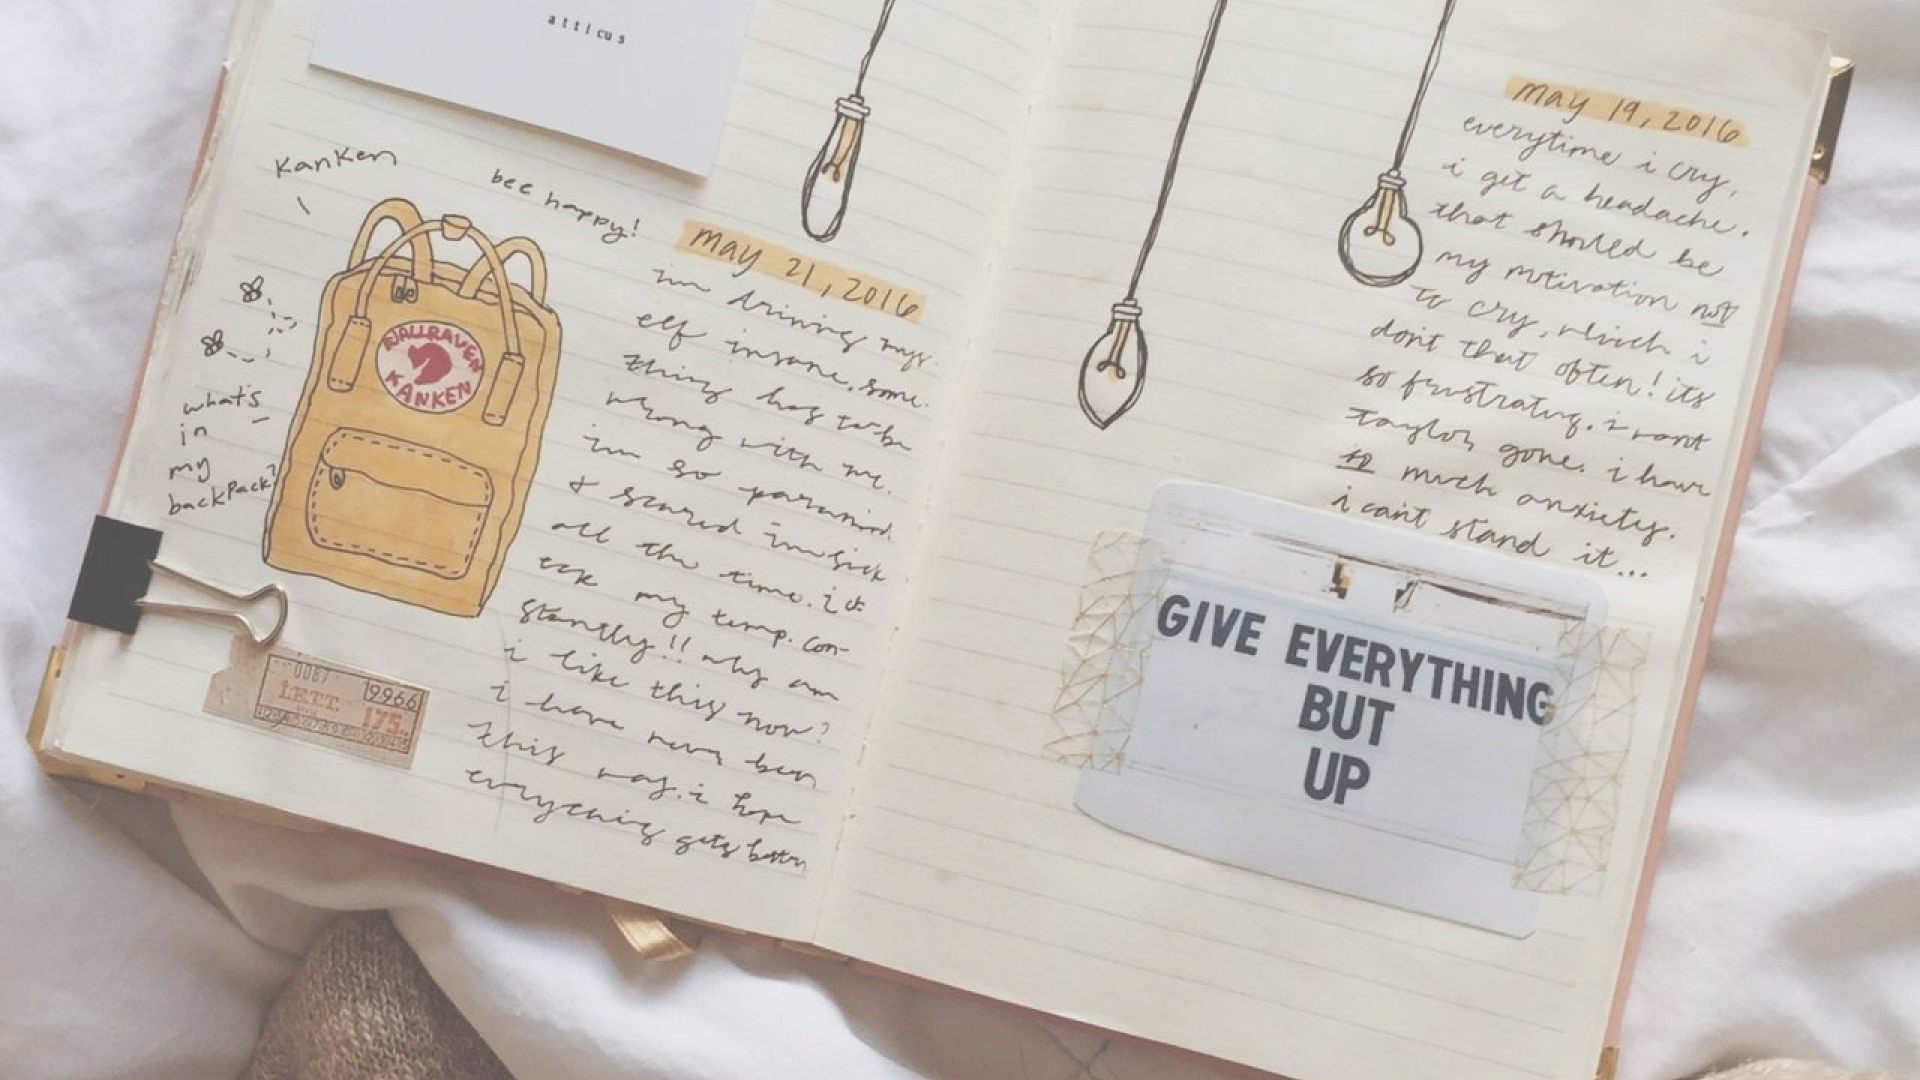 atticus
Kanken
bee happy!
FJALLRAVEN
KANKEN
what's
in
my
backpack?
0087
LETT.
19966
175.
may 21, 2016
im driving mys-
elf insane. some-
thing has to be
wrong with me.
im so paranoid
& scared im sick
all the time. i ch-
eck my temp. con-
stantly!! why am
i like this now?
i have never been
this way. i hope
everything gets better
may 19, 2016
everytime i cry,
i get a headache.
that should be
my motivation not
to cry, which i
dont that often! its
so frustrating. i want
taylor gone. i have
so much anxiety.
i can't stand it...
GIVE EVERYTHING
BUT
UP